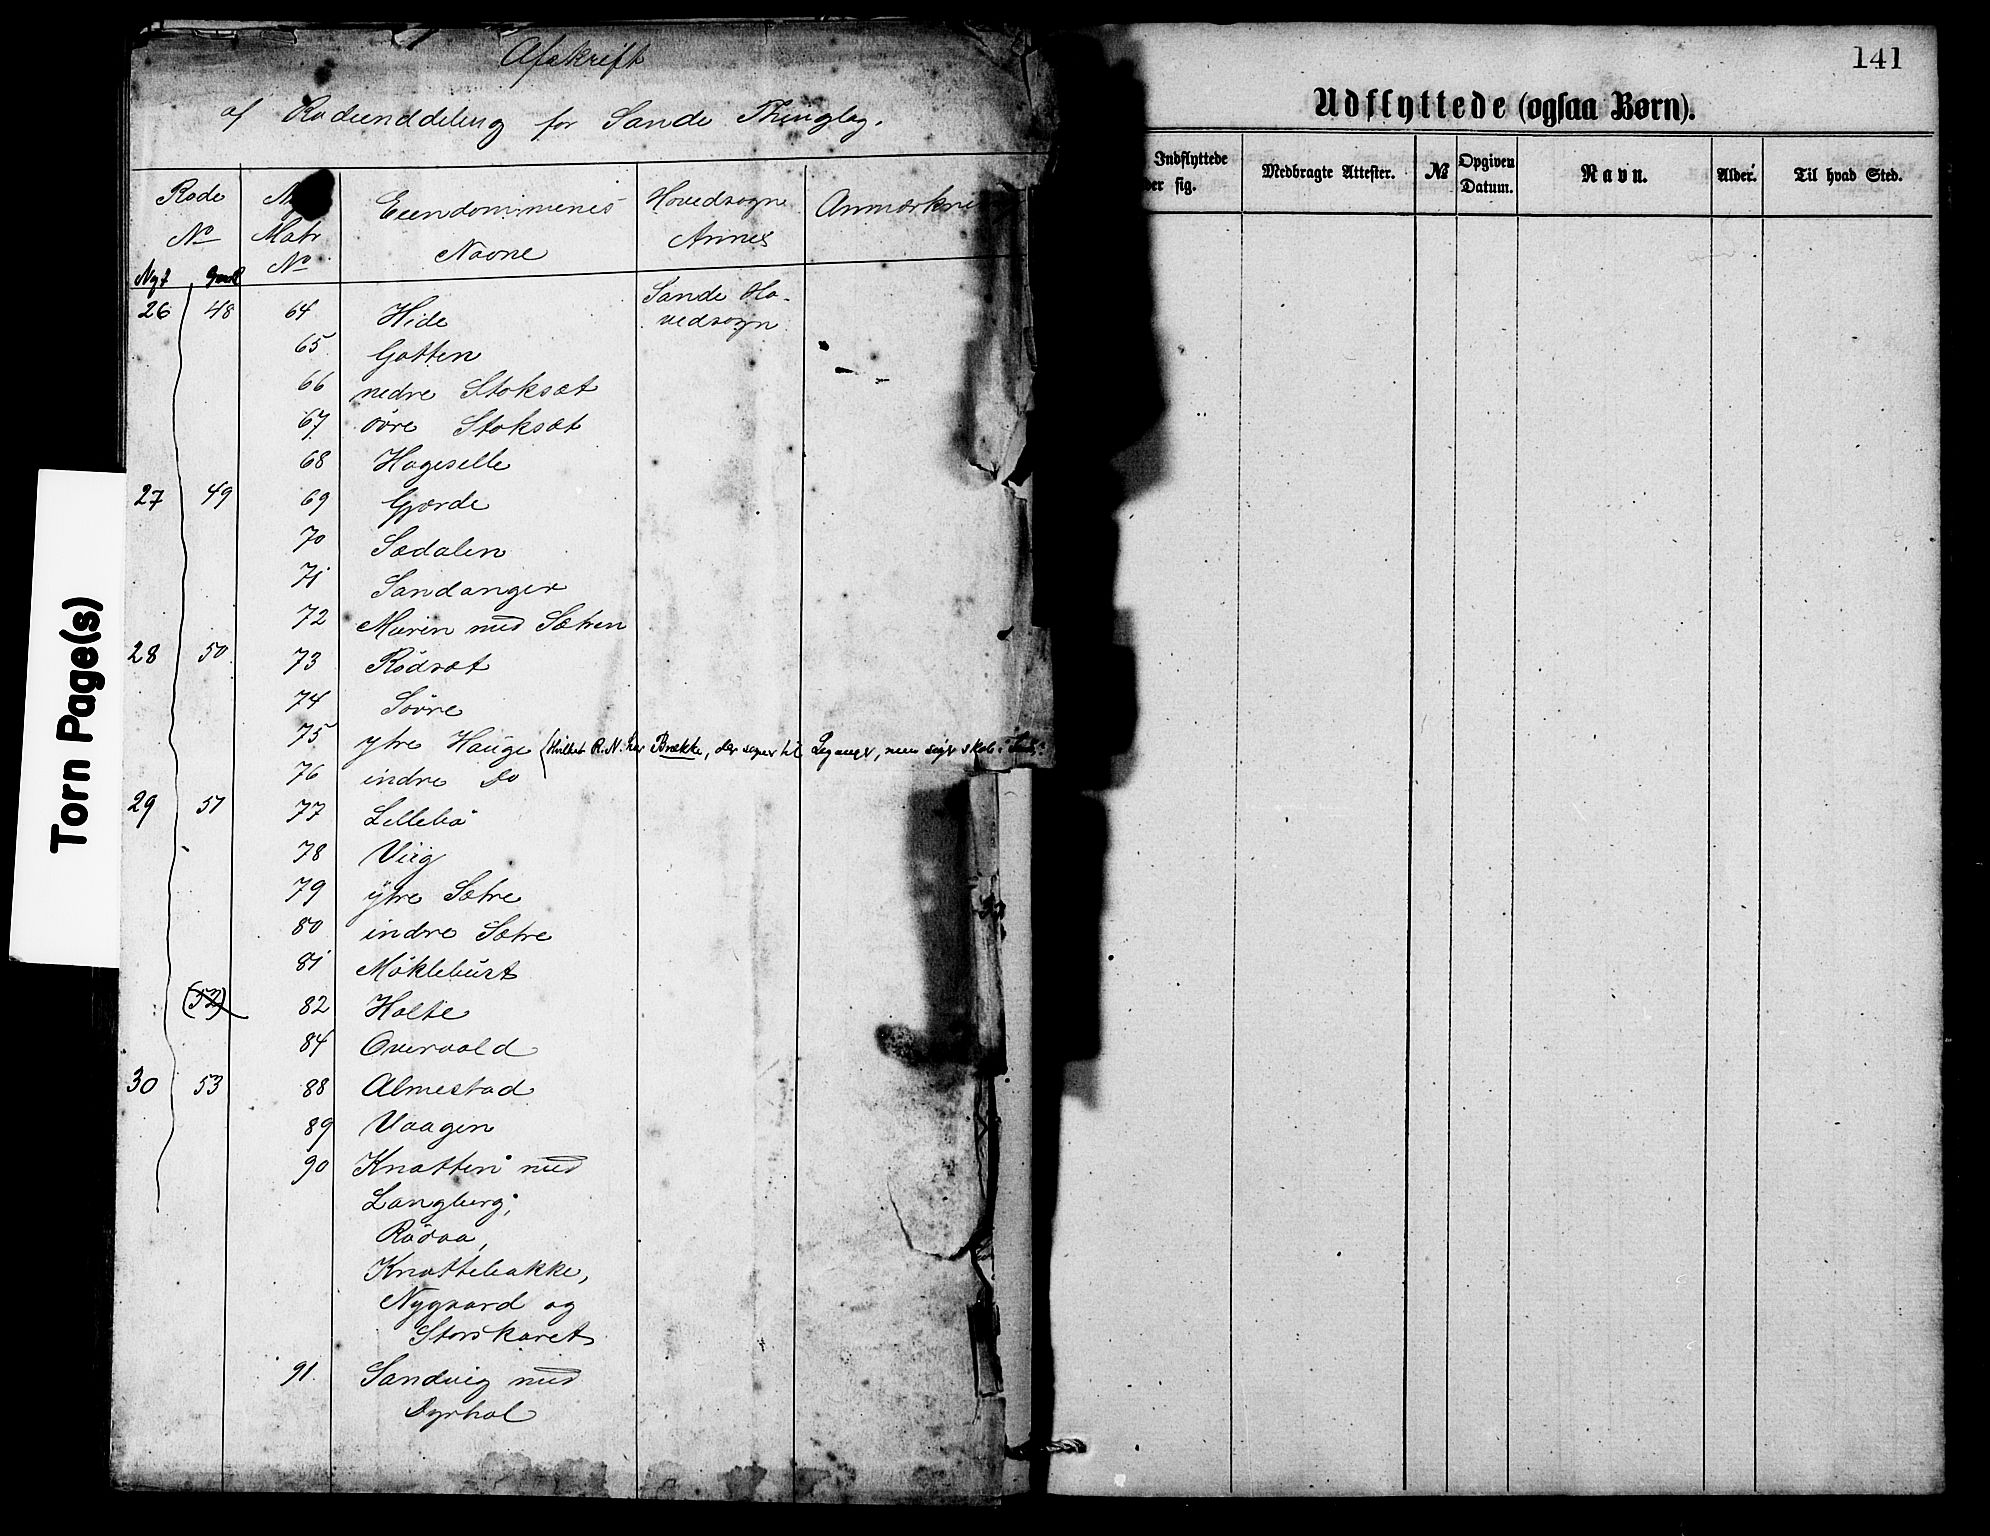 Afskrift
af Rodeinddeling for Sande Thinglag.
Rode No Matr No Eiendommenes Navne Hovedsogn Annex Anmærkn
Nyt Gml
26 48 64 Hide Sande Ho-
vedsogn
65 Gotten
66 nedre Stoksæt
67 övre Stoksæt
68 Hageselle
27 49 69 Gjærde
70 Sædalen
71 Sandanger
72 Maren med Sætren
28 50 73 Rödsæt
74 Sövre
75 ytre Hauge (Hvilket R. N. har Brække, der sogner til
76 indre Do
29 51 77 Lillebö
78 Viig
79 ytre Sætre
80 indre Sætre
81 Möklebust
(52) 82 Holte
84 Overvold
30 53 88 Almestad
89 Vaagen
90 Knotten med
Langberg,
Rödaa,
Knottebakke,
Nygaard og
Storskaret
91. Sandvig med
Dyrhol
Torn Page(s)
141
Udflyttede (ogsaa Børn).
Indflyttede
der sig. Medbragte Attester. No Opgiven Datum. Navn. Alder. Til hvad Sted.